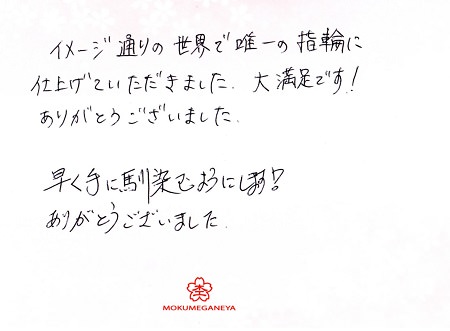 イメージ通りの世界で唯一の指輪に
仕上げていただきました。大満足です!
ありがとうございました。
早く手に馴染むようにします!
ありがとうございました。
MOKUMEGANEYA